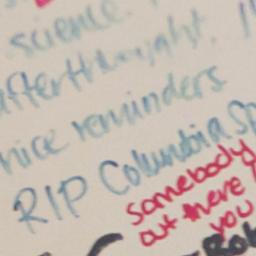 science.
afterthought.
nice reminders
RIP Columbia
Somebody
out there
you